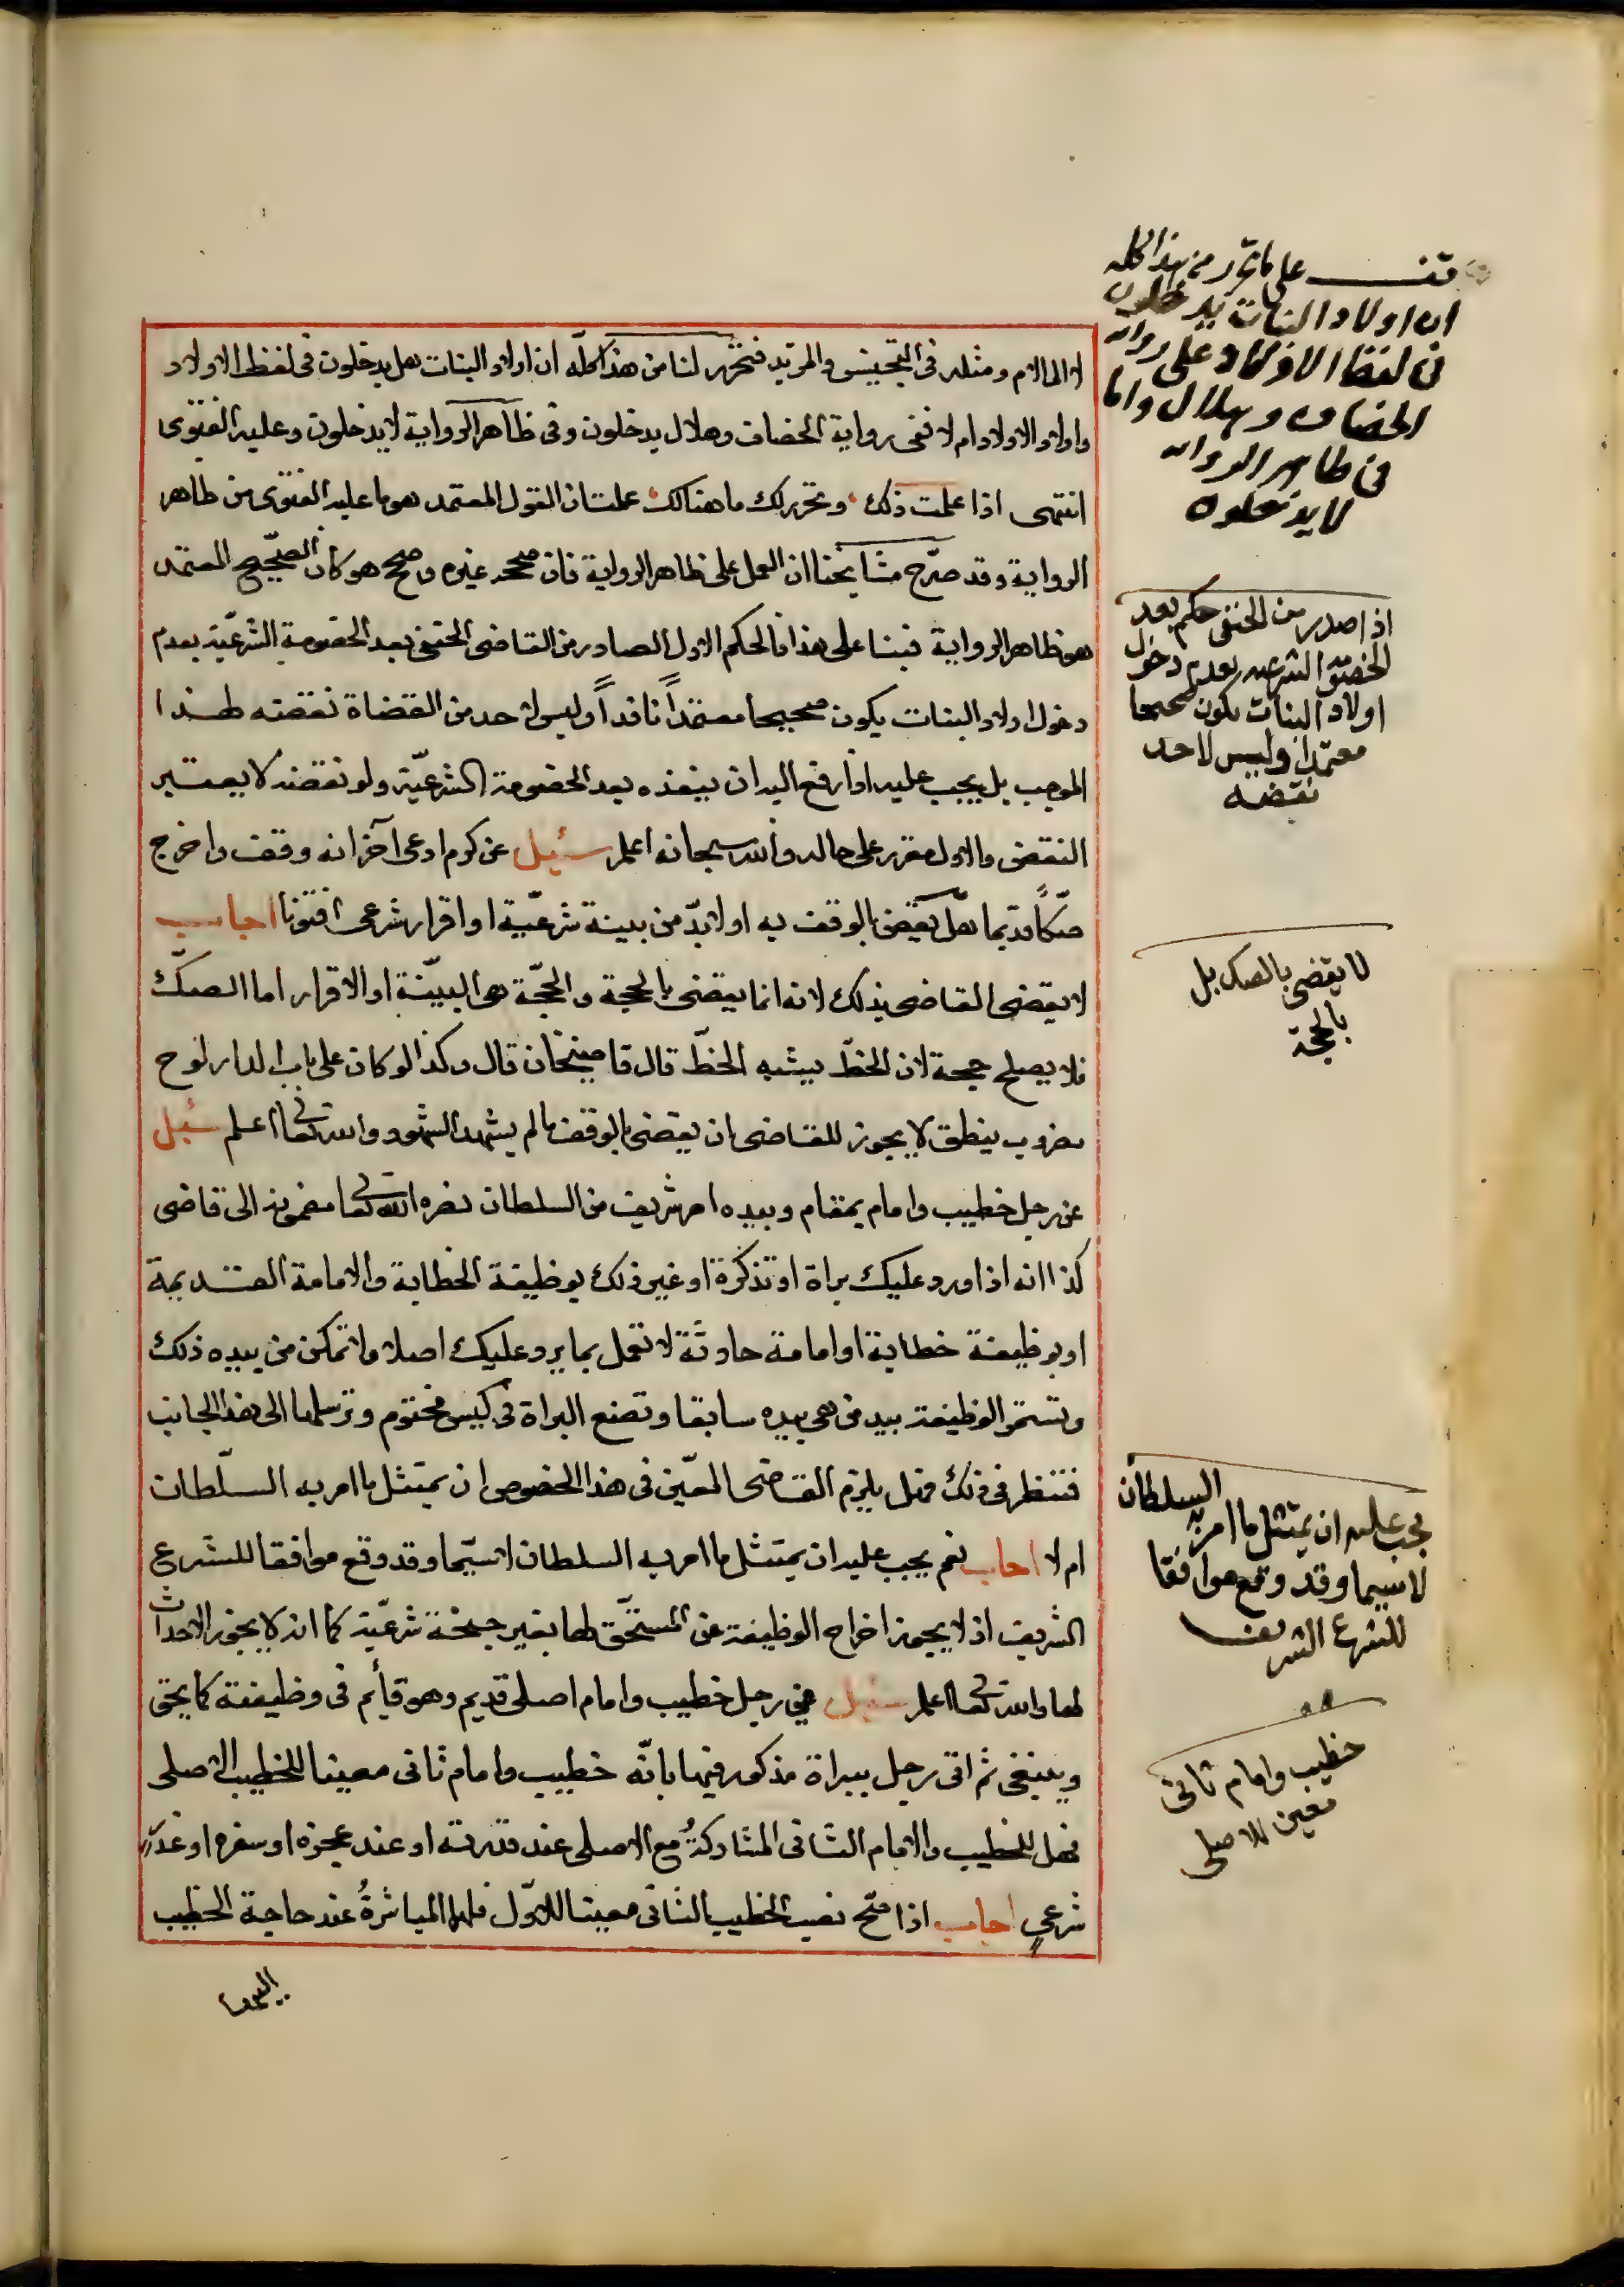 لا الى الام ومثله فى التجنيس والمزيد فتحرر لنا من هذا كلّه ان اولاد البنات هل يدخلون فى لفظ الاولاد
واولاد الاولاد ام لا ففى رواية الخصاف وهلال يدخلون وفى ظاهر الرواية لا يدخلون وعليه الفتوى
انتهى اذا علمت ذلك وتحرر لك ما هنالك علمت ان القول المعتمد هو ما عليه الفتوى من ظاهر
الرواية وقد صرّح مشايخنا ان العمل على ظاهر الرواية فان صحح غيره وصحح هو كان الصّحيح المعتمد
هو ظاهر الرواية فبنا على هذا فالحكم الاول الصادر من القاضى الحنفى بعد الخصومة الشرعيّة بعدم
دخول اولاد البنات يكون صحيحا معتمداً نافداً وليس لاحد من القضاة نقضه لهذا
الموجب بل يجب عليه اذا رفع اليه ان ينفذه بعد الخصومة الشرعيّة ولو نقضه لا يعتبر
النقض والاول مقرر على حاله والله سبحانه اعلم سئيل عن كرم ادعى آخر انه وقف واخرج
صكّاً قديما هل يقضى بالوقف به او لابدّ من بينة شرعيّية او اقرار شرعى افتونا اجاب
لا يقضى القاضى بذلك لانه انما يقضى بالحجة والحجّة هى البيّنة او الاقرار اما الصكّ
فلا يصلح حجة لان الخطّ يشبه الخطّ قال قاضيخان قال وكذا لو كان على باب الدار لوح
مضروب ينطق لا يجوز للقاضى ان يقضى بالوقف ما لم يشهد الشهود والله تعالى اعلم سئيل
عن رجل خطيب وامام بمقام وبيده امر شريف من السلطان نصره الله تعالى مضمونه الى قاضى
كذا انه اذا ورد عليك براة او تذكرة او غير ذلك بوظيفة الخطابة والامامة القديمة
او بوظيفة خطابة او امامة حادثة لا تعمل بما يرد عليك اصلا ولا تمكن من بيده ذلك
وتستمر الوظيفة بيد من هى بيده سابقا وتضع البراة فى كيس مختوم وترسلها الى هذا الجانب
فننظر فى ذلك فهل يلزم القاضى المعيّن فى هذا الخصوص ان يمتثل ما امر به السلّطان
ام لا اجاب نعم يجب عليه ان يمتثل ما امر به السلطان لا سيّما وقد وقع موافقا للشرع
الشريف اذ لا يجوز اخراج الوظيفة عن المستحّق لها بغير جنحة شرعيّة كما انه لا يجوز الاحداث
لها والله تعالى اعلم سئيل عن رجل خطيب وامام اصلى قديم وهو قائم فى وظيفته كما يحق
وينبغى ثم اتى رجل ببراة مذكور فيها بانّه خطيب وامام ثانى معينا للخطيب الاصلى
فهل للخطيب والامام الثانى المشاركةُ مع الاصلى عند قدرته او عند عجزه او سفره او عذر
شرعىٍ اجاب اذا صّح نصب الخطيب الثانى معينا للاوّل فله المباشرةُ عند حاجة الخطيب
قف على ما تحرر من هذا كله
ان اولاد البنات يدخلون
فى لفظ الاولاد على رواية
الخصاف وهلال واما
فى ظاهر الرواية
لا يدخلون
اذا صدر من الحنفى حكم بعد
الخصومة الشرعيه بعدم دخول
اولاد البنات يكون صحيحا
معتمدا وليس لاحد
نقضه
لا يقضى بالصك بل
بالحجة
يجب عليه ان يمتثل ما امر به السلطان
لا سيما وقد وقع موافقا
للشرع الشريف
خطيب وامام ثانى
معين للاصلى